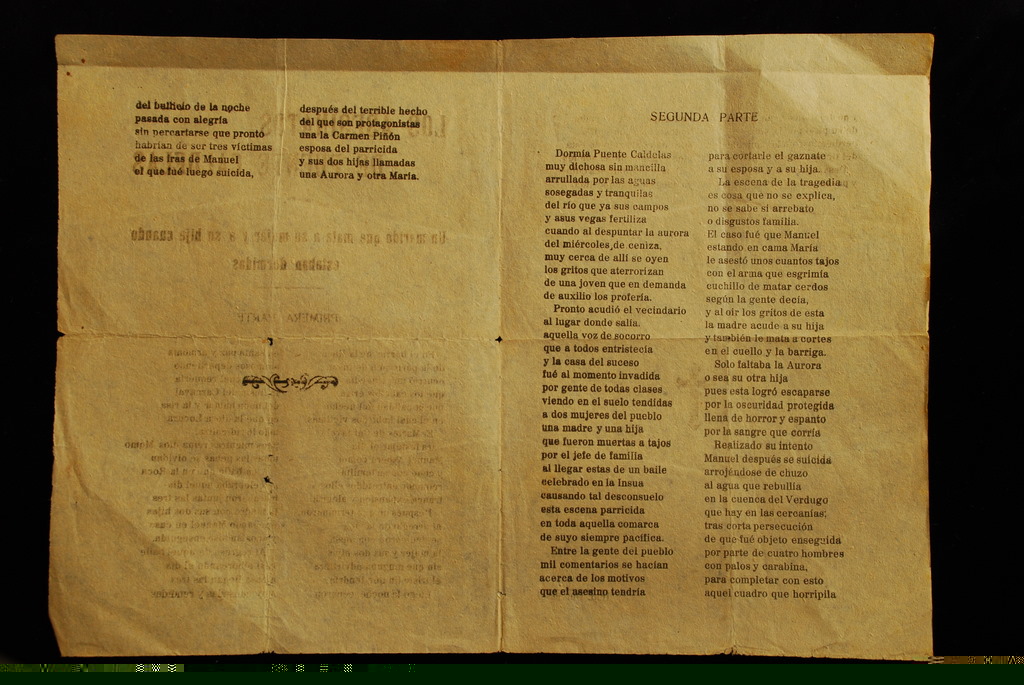 del bullicio de la noche
pasada con alegría
sin percartarse que pronto
habrían de ser tres víctimas
de las iras de Manuel
el que fué luego suicida,
después del terrible hecho
del que son protagonistas
una la Carmen Piñón
esposa del parricida
y sus dos hijas llamadas
una Aurora y otra María.
SEGUNDA PARTE
Dormía Puente Caldelas
muy dichosa sin mancilla
arrullada por las aguas
sosegadas y tranquilas
del río que ya sus campos
y asus vegas fertiliza
cuando al despuntar la aurora
del miércoles,de ceniza,
muy cerca de allí se oyen
los gritos que aterrorizan
de una joven que en demanda
de auxilio los profería.
Pronto acudió el vecindario
al lugar donde salía,
aquella voz de socorro
que a todos entristecía
y la casa del suceso
fué al momento invadida
por gente de todas clases
viendo en el suelo tendidas
a dos mujeres del pueblo
una madre y una hija
que fueron muertas a tajos
por el jefe de familia
al llegar estas de un baile
celebrado en la Insua
causando tal desconsuelo
esta escena parricida
en toda aquella comarca
de suyo siempre pacífica.
Entre la gente del pueblo
mil comentarios se hacían
acerca de los motivos
que el asesino tendría
para cortarle el gaznate
a su esposa y a su hija.
La escena de la tragedia
es cosa que no se explica,
no se sabe si arrebato
o disgustos familia.
El caso fué que Manuel
estando en cama María
le asestó unos cuantos tajos
con el arma que esgrimía
cuchillo de matar cerdos
según la gente decía,
y al oir los gritos de esta
la madre acude a su hija
y también le mata a cortes
en el cuello y la barriga.
Solo faltaba la Aurora
o sea su otra hija
pues esta logró escaparse
por la oscuridad protegida
llena de horror y espanto
por la sangre que corría
Realizado su intento
Manuel después se suicida
arrojéndose de chuzo
al agua que rebullía
en la cuenca del Verdugo
que hay en las cercanías;
tras corta persecución
de que fué objeto enseguida
por parte de cuatro hombres
con palos y carabina,
para completar con esto
aquel cuadro que horripila